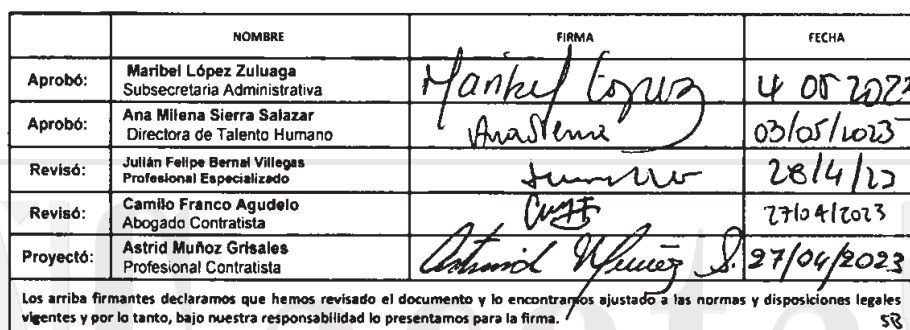 NOMBRE FIRMA FECHA
Aprobó: Maribel López Zuluaga
Subsecretaria Administrativa Maribel López 4 05 2023
Aprobó: Ana Milena Sierra Salazar
Directora de Talento Humano 03/05/2023
Revisó: Julián Felipe Bernal Villegas
Profesional Especializado 28/4/23
Revisó: Camilo Franco Agudelo
Abogado Contratista 27/04/2023
Proyectó: Astrid Muñoz Grisales
Profesional Contratista Astrid Muñoz G. 27/04/2023
Los arriba firmantes declaramos que hemos revisado el documento y lo encontramos ajustado a las normas y disposiciones legales
vigentes y por lo tanto, bajo nuestra responsabilidad lo presentamos para la firma.